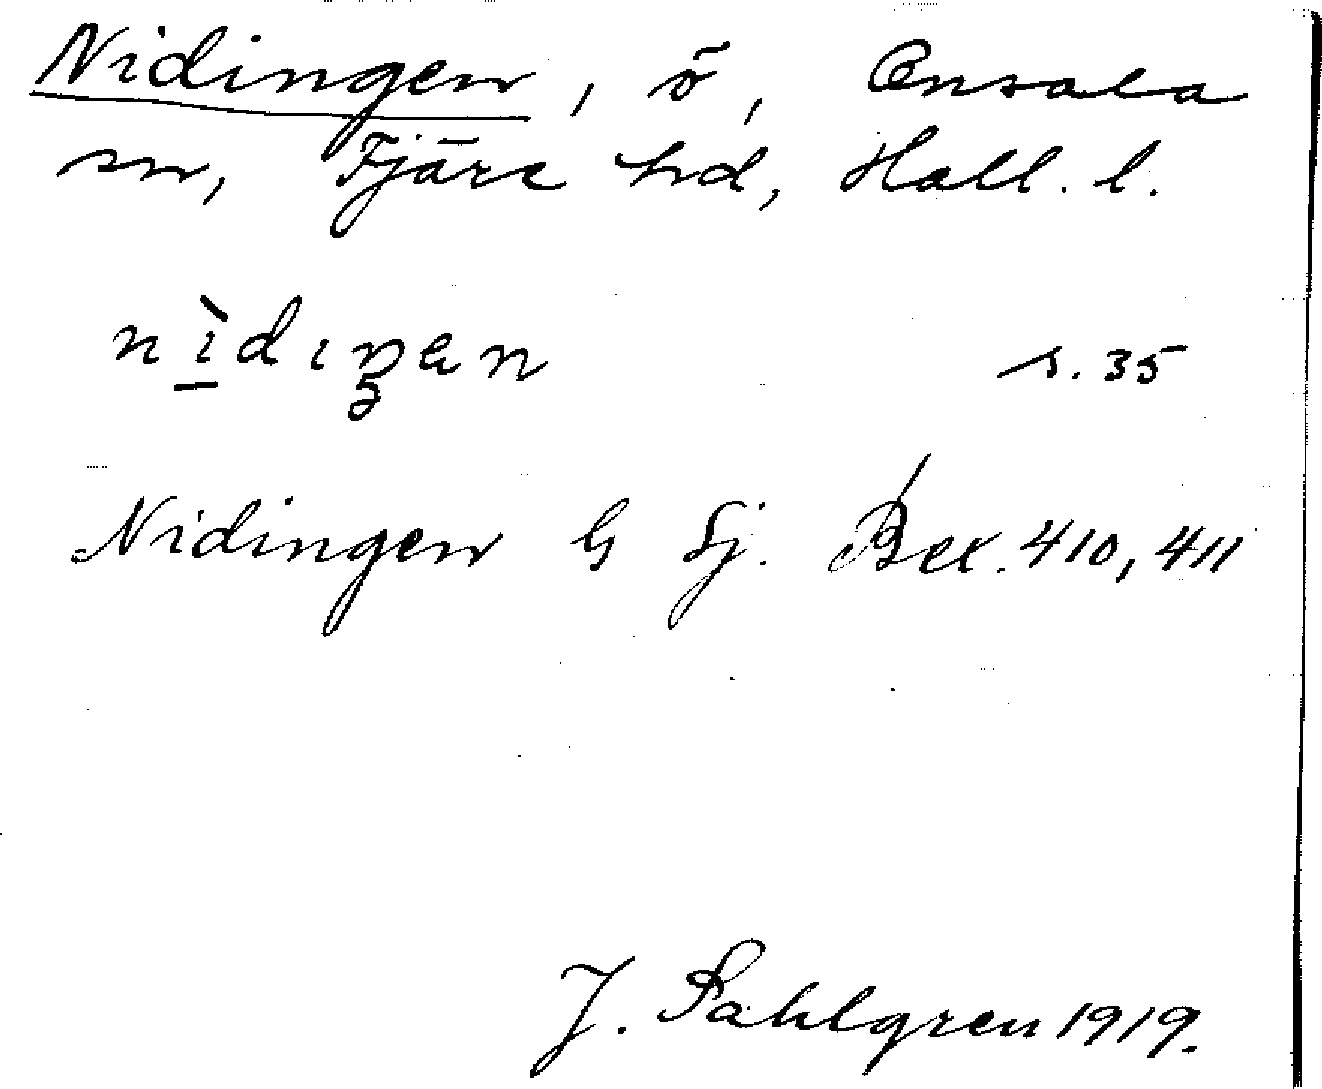 Nidingen, ö, Onsala
sn, Fjäre hd, Hall. l.
nìdiŋen s. 35
Nidingen G Sj. Bex. 410, 411
J. Sahlgren 1919.